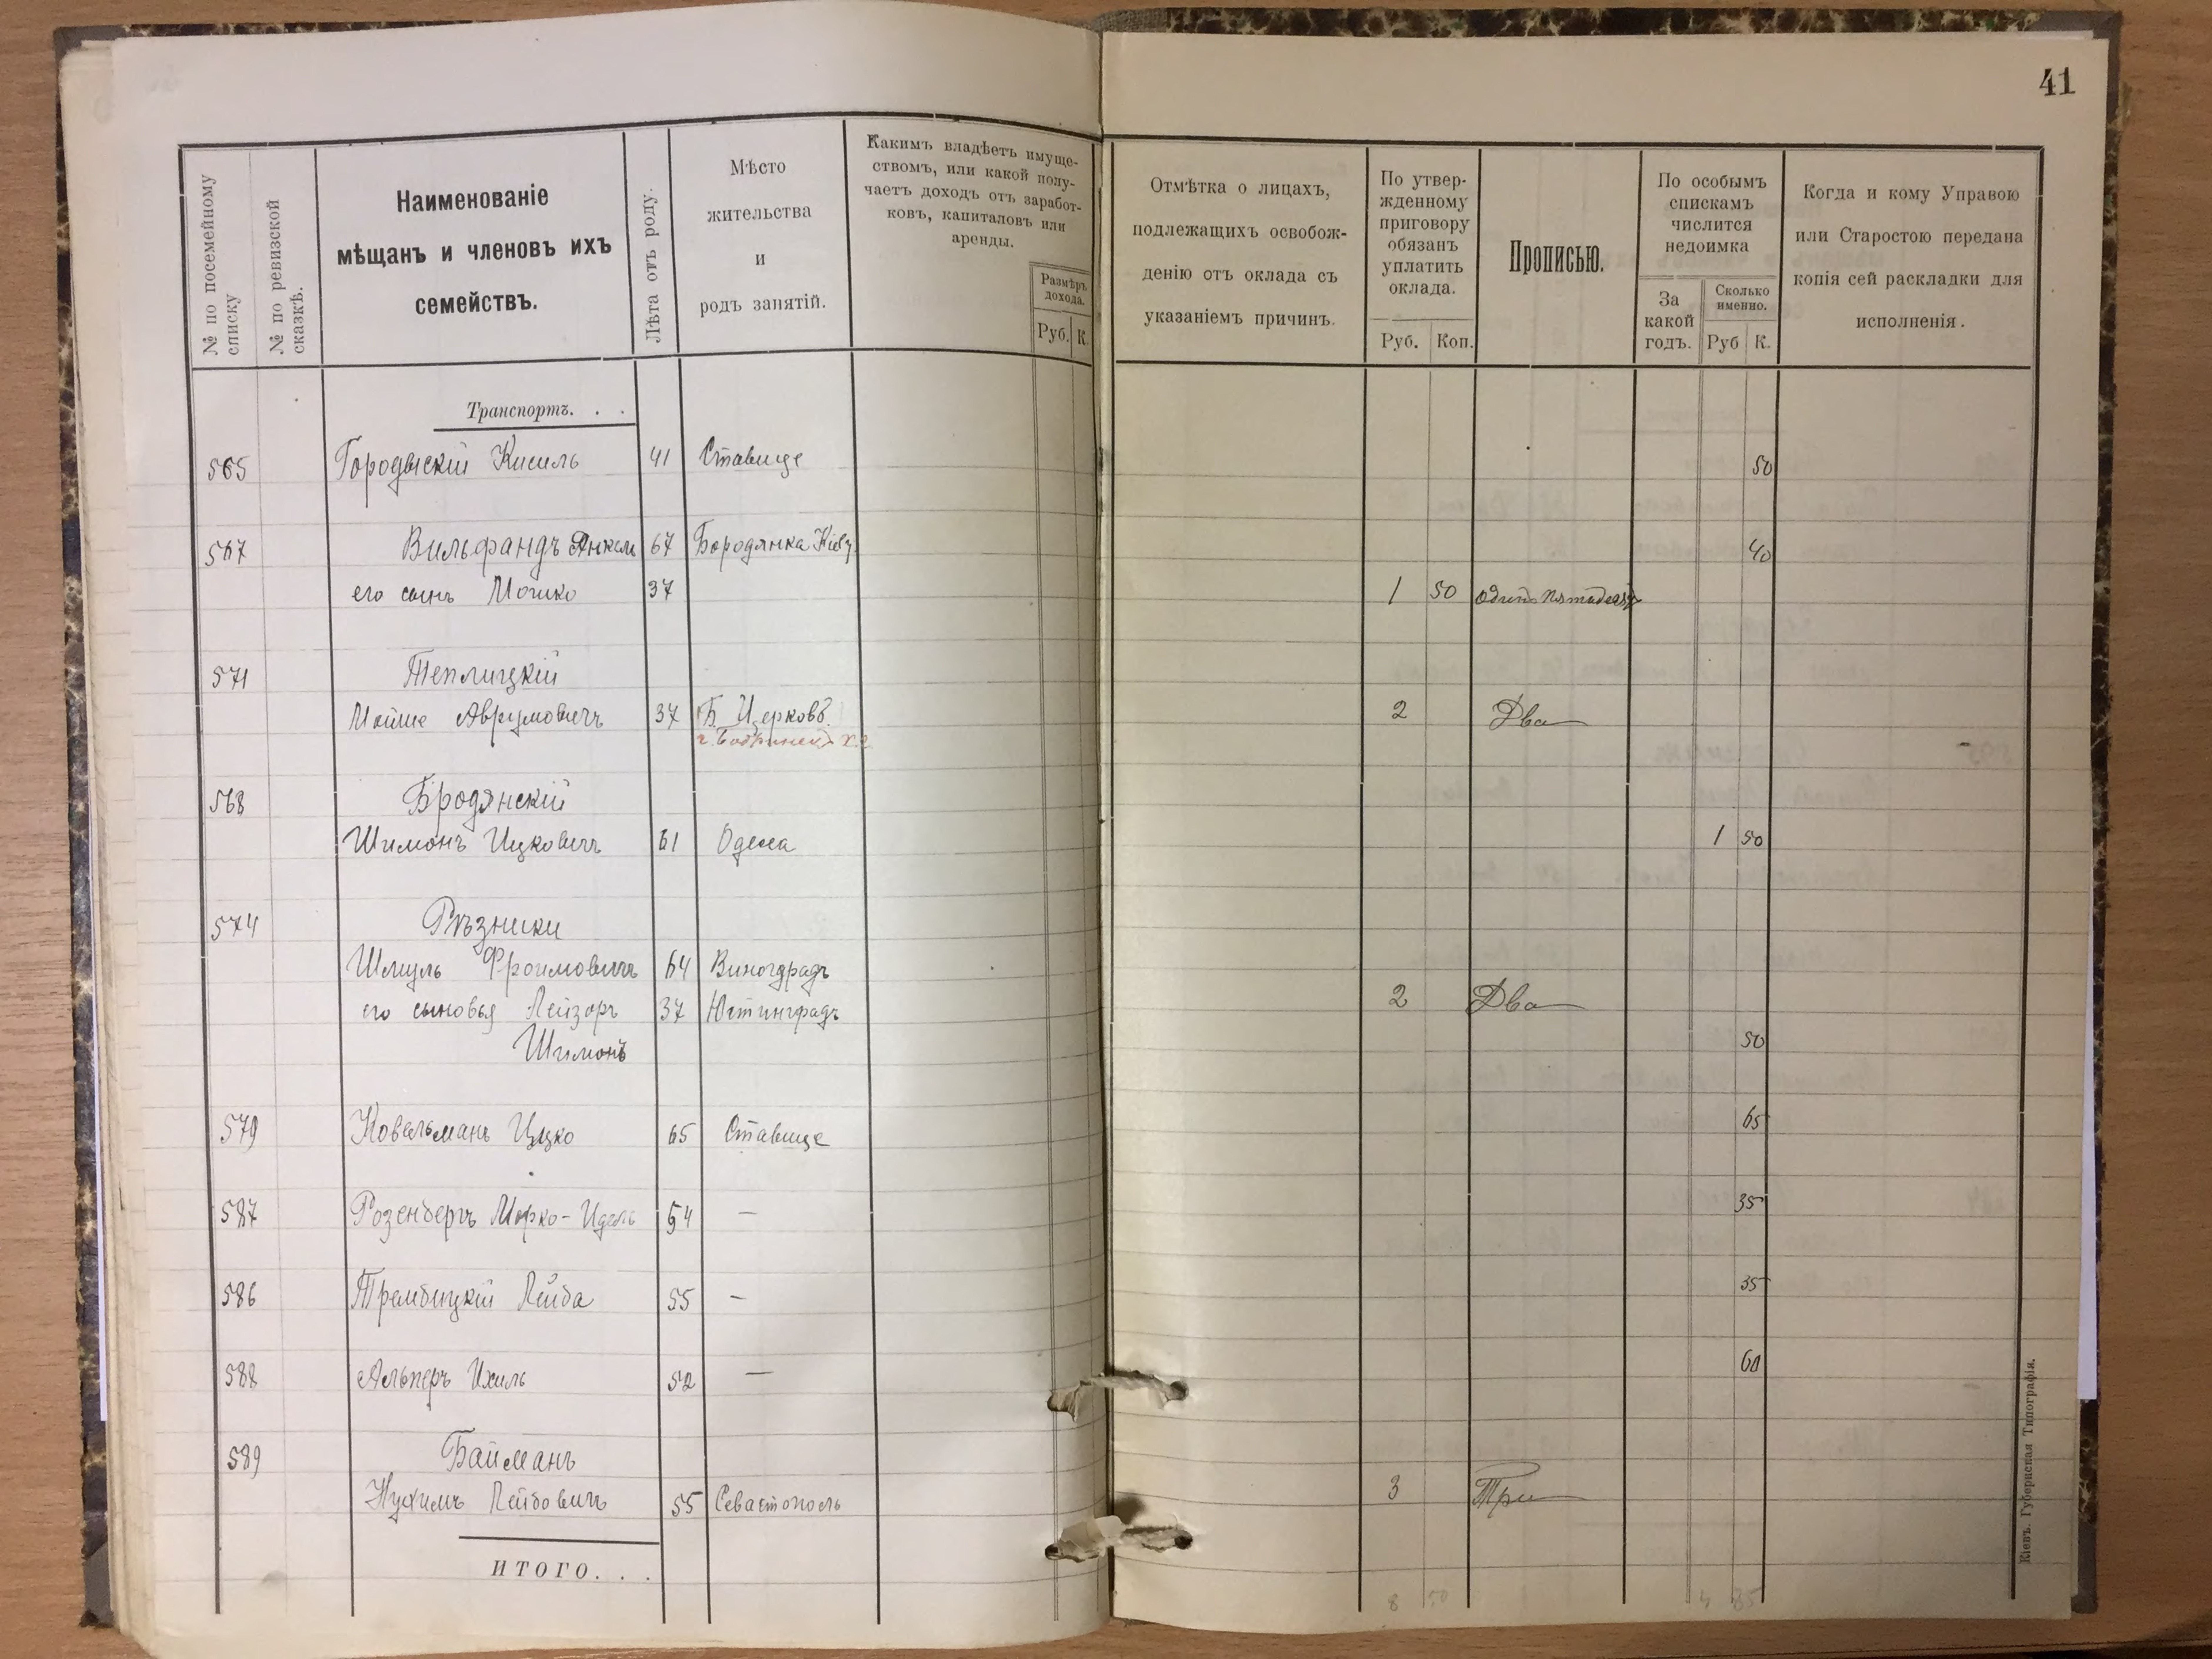 41
№ по посемейному списку
№ по ревизской сказкѣ.
Наименованіе
мѣщанъ и членовъ ихъ
семействъ.
Лѣта отъ роду.
Мѣсто
жительства
и
родъ занятій.
Какимъ владѣетъ имуще-
ствомъ, или какой полу-
чаетъ доходъ отъ заработ-
ковъ, капиталовъ или
аренды.
Размѣръ
дохода.
Руб. К.
Отмѣтка о лицахъ,
подлежащихъ освобож-
денію отъ оклада съ
указаніемъ причинъ.
По утвер-
жденному
приговору
обязанъ
уплатить
оклада.
Руб. Коп.
Прописью.
По особымъ
спискамъ
числится
недоимка
За
какой
годъ.
Сколько
именно.
Руб К.
Когда и кому Управою
или Старостою передана
копія сей раскладки для
исполненія.
Транспортъ. . .
565 Городыскій Кисиль 41 Ставище 50
567 Вильфандъ Янкель 67 Бородянка Кіев у 40
его сынъ Мошко 37 1 50 Одинъ пятьдесят
571 Теплицкій
Мойше Аврумовичъ 37 Б. Церковь. 2 Два
568 Бродянскій
Шимонъ Ицковичъ 61 Одесса 1 50
574 Рѣзники
Шмуль Фроимовичъ 64 Виноградъ
его сыновья Лейзоръ 37 Юстинградъ 2 Два
Шимонъ 50
579 Ковельманъ Ицко 65 Ставище 65
587 Розенбергъ Морко-Идель 54 — 35
586 Трембицкій Лейба 55 — 35
588 Альперъ Ихиль 52 — 60
589 Байманъ
Нухимъ Лейбовичъ 55 Севастополь 3 Три
ИТОГО. . .
8 50 4 85
Кіевъ. Губернская Типографія.